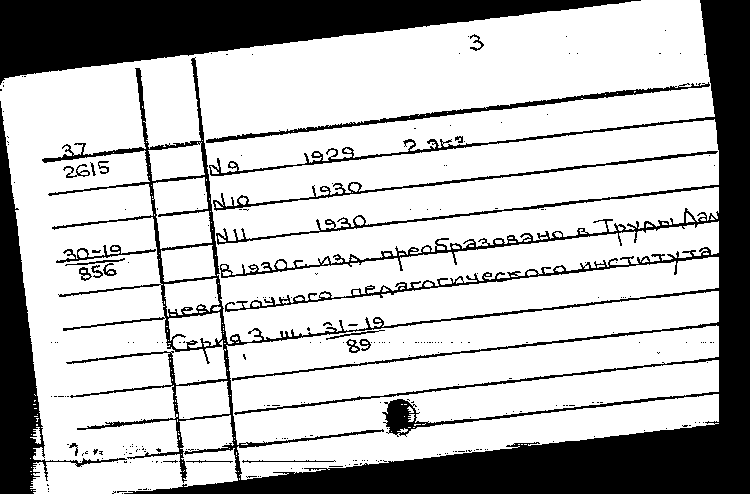 3
37
2615 N9 1929 2 экз
N10 1930
N11 1930
30-19
856 В 1930 г. изд. преобразовано в Труды Даль
невосточного педагогического института
Серия 3. ш.: 31-19
89